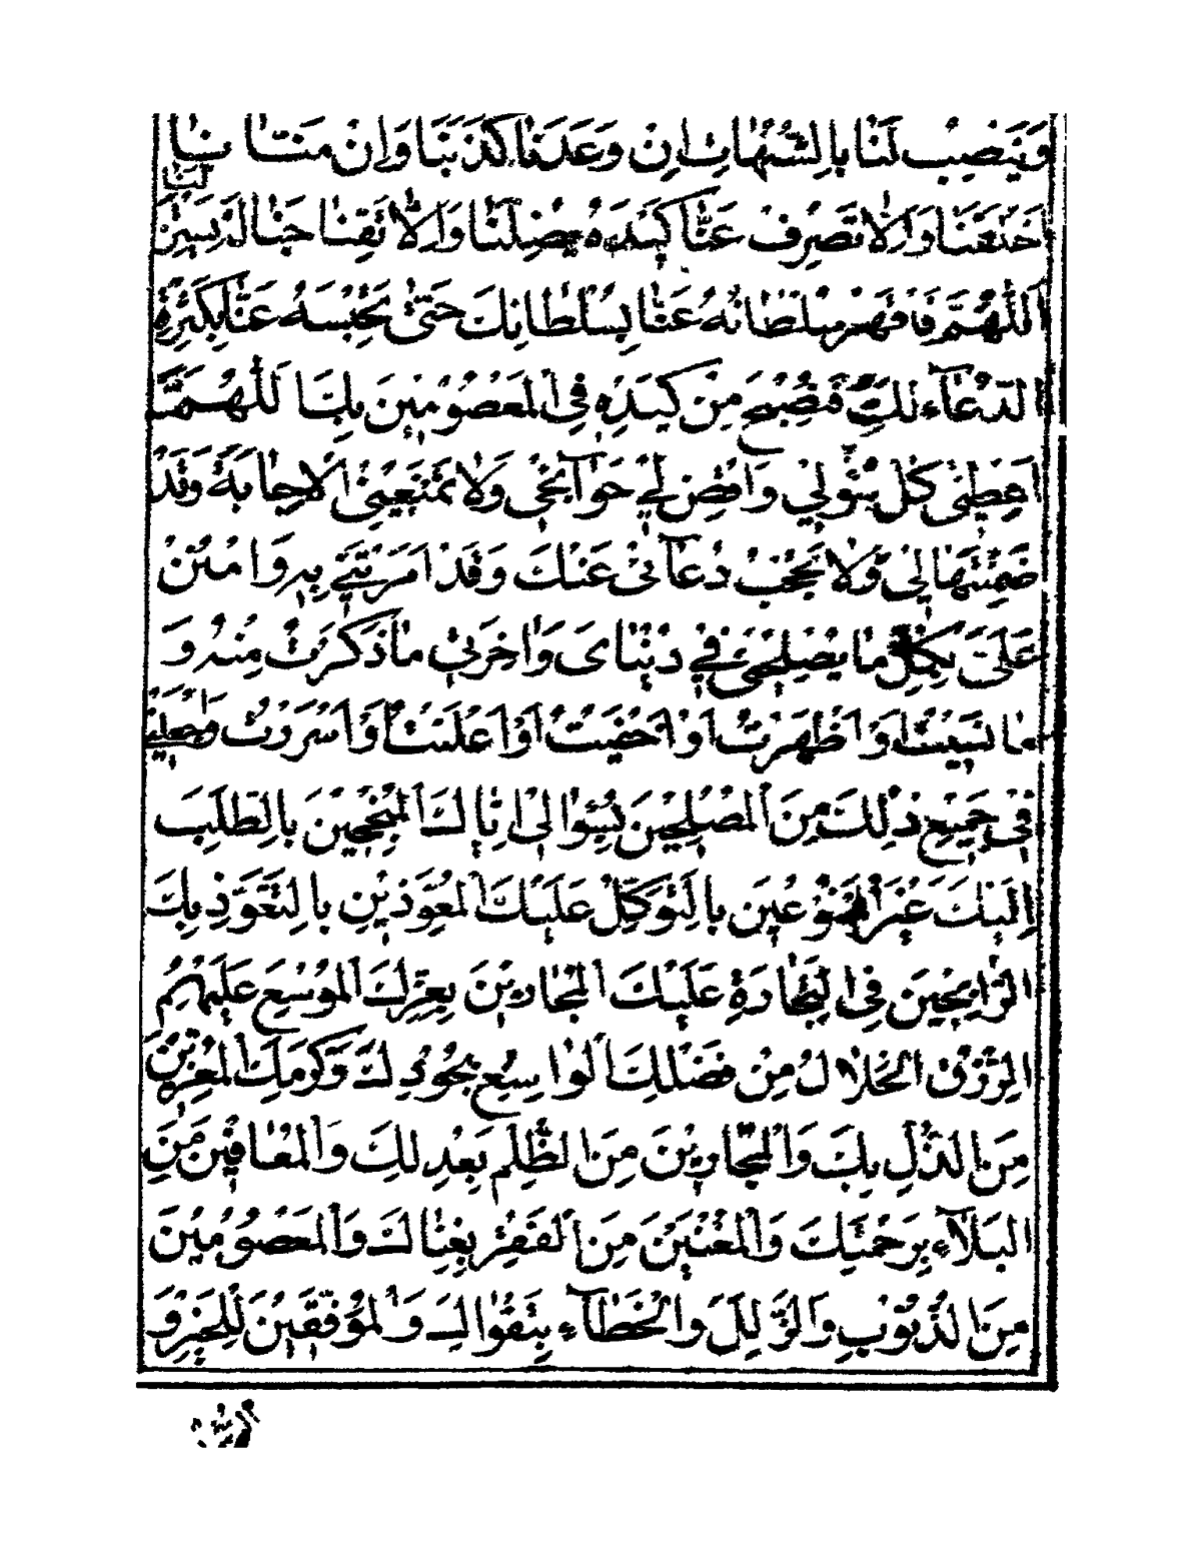 وَيَنْصِبُ لَنَا بِالشُّبُهَاتِ اِنْ وَعَدَنَا كَذَبَنَا وَاِنْ مَنَّانَا
لَنَا
خَدَعَنَا وَاِلَّا تَصْرِفْ عَنَّا كَيْدَهُ يُضِلَّنَا وَاِلَّا تَقِنَا خَبَالَهُ يَسْتَزِلَّنَا
اَللّٰهُمَّ فَاقْهَرْ سُلْطَانَهُ عَنَّا بِسُلْطَانِكَ حَتّٰى تَحْبِسَهُ عَنَّا بِكَثْرَةِ
الدُّعَآءِ لَكَ فَنُصْبِحَ مِنْ كَيْدِهِ فِي الْمَعْصُومِينَ بِكَ اَللّٰهُمَّ
اَعْطِنِى كُلَّ سُؤْلِي وَاقْضِ لِي حَوَآئِجِى وَلَا تَمْنَعْنِى الْاِجَابَةَ وَقَدْ
ضَمِنْتَهَا لِى وَلَا تَحْجُبْ دُعَآئِى عَنْكَ وَقَدْ اَمَرْتَنِي بِهِ وَامْنُنْ
عَلَىَّ بِكُلِّ مَا يُصْلِحُنِى فِي دُنْيَاىَ وَاٰخِرَتِي مَا ذَكَرْتُ مِنْهُ وَ
مَا نَسِيتُ اَوْ اَظْهَرْتُ اَوْ اَخْفَيْتُ اَوْ اَعْلَنْتُ اَوْ اَسْرَرْتُ وَاجْعَلْنِي
فِي جَمِيعِ ذٰلِكَ مِنَ الْمُصْلِحِينَ بِسُؤَالِى اِيَّاكَ الْمُنْجِحِينَ بِالطَّلَبِ
اِلَيْكَ غَيْرِ الْمَمْنُوعِينَ بِالتَّوَكُّلِ عَلَيْكَ الْمُعَوَّذِينَ بِالتَّعَوُّذِ بِكَ
الرَّابِحِينَ فِى التِّجَارَةِ عَلَيْكَ الْمُجَارِينَ بِعِزِّكَ الْمُوْسَعِ عَلَيْهِمُ
الرِّزْقُ الْحَلَالُ مِنْ فَضْلِكَ الْوَاسِعِ بِجُودِكَ وَكَرَمِكَ الْمُعَزِّينَ
مِنَ الذُّلِّ بِكَ وَالْمُجَارِينَ مِنَ الظُّلْمِ بِعَدْلِكَ وَالْمُعَافَيْنَ مِنَ
الْبَلَآءِ بِرَحْمَتِكَ وَالْمُغْنَيْنَ مِنَ الْفَقْرِ بِغِنَاكَ وَالْمَعْصُومِينَ
مِنَ الذُّنُوبِ وَالزَّلَلِ وَالْخَطَآءِ بِتَقْوَاكَ وَالْمُوَفَّقِينَ لِلْخَيْرِ وَ